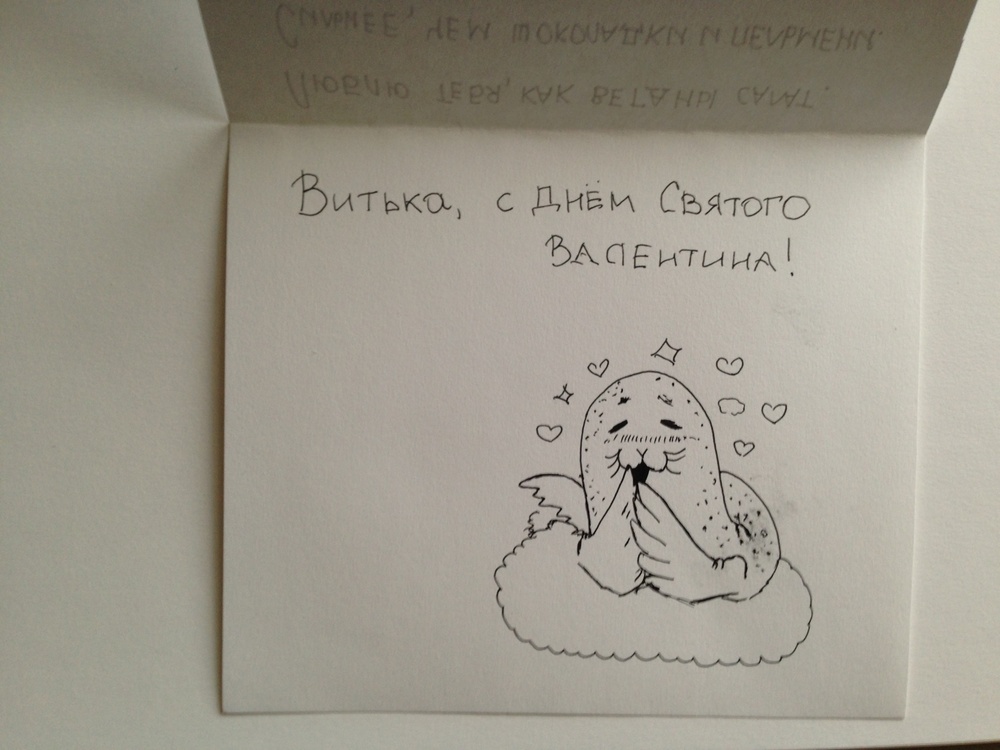 Люблю тебя, как веганы салат.
Сильнее, чем шоколадки и пельмени.
Витька, с Днём Святого
Валентина!